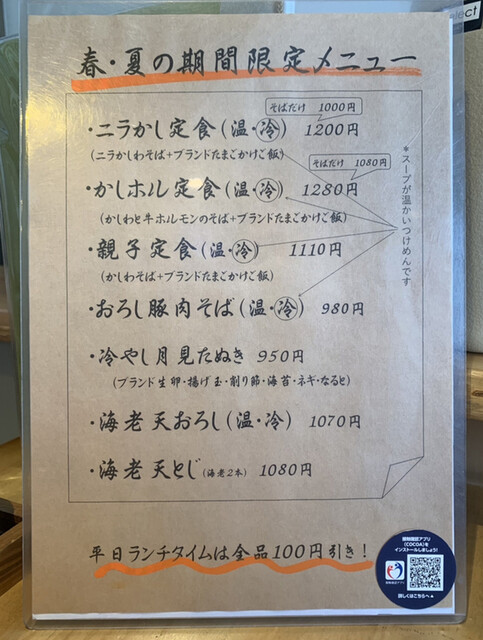 lect
春・夏の期間限定メニュー
そばだけ 1000円
・ニラかし定食(温・冷) 1200円
(ニラかしわそば+ブランドたまごかけご飯)
そばだけ 1080円
・かしホル定食(温・冷) 1280円
(かしわと牛ホルモンのそば+ブランドたまごかけご飯)
・親子定食(温・冷) 1110円
(かしわそば+ブランドたまごかけご飯)
・おろし豚肉そば(温・冷) 980円
*スープが温かいつけめんです
・冷やし月見たぬき 950円
(ブランド生卵・揚げ玉・削り節・海苔・ネギ・なると)
・海老天おろし(温・冷) 1070円
・海老天とじ(海老2本) 1080円
平日ランチタイムは全品100円引き!
接触確認アプリ
(COCOA)を
インストールしましょう!
詳しくはこちらへ